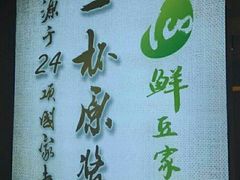 鲜豆家
一杯原浆
源于24项国家专